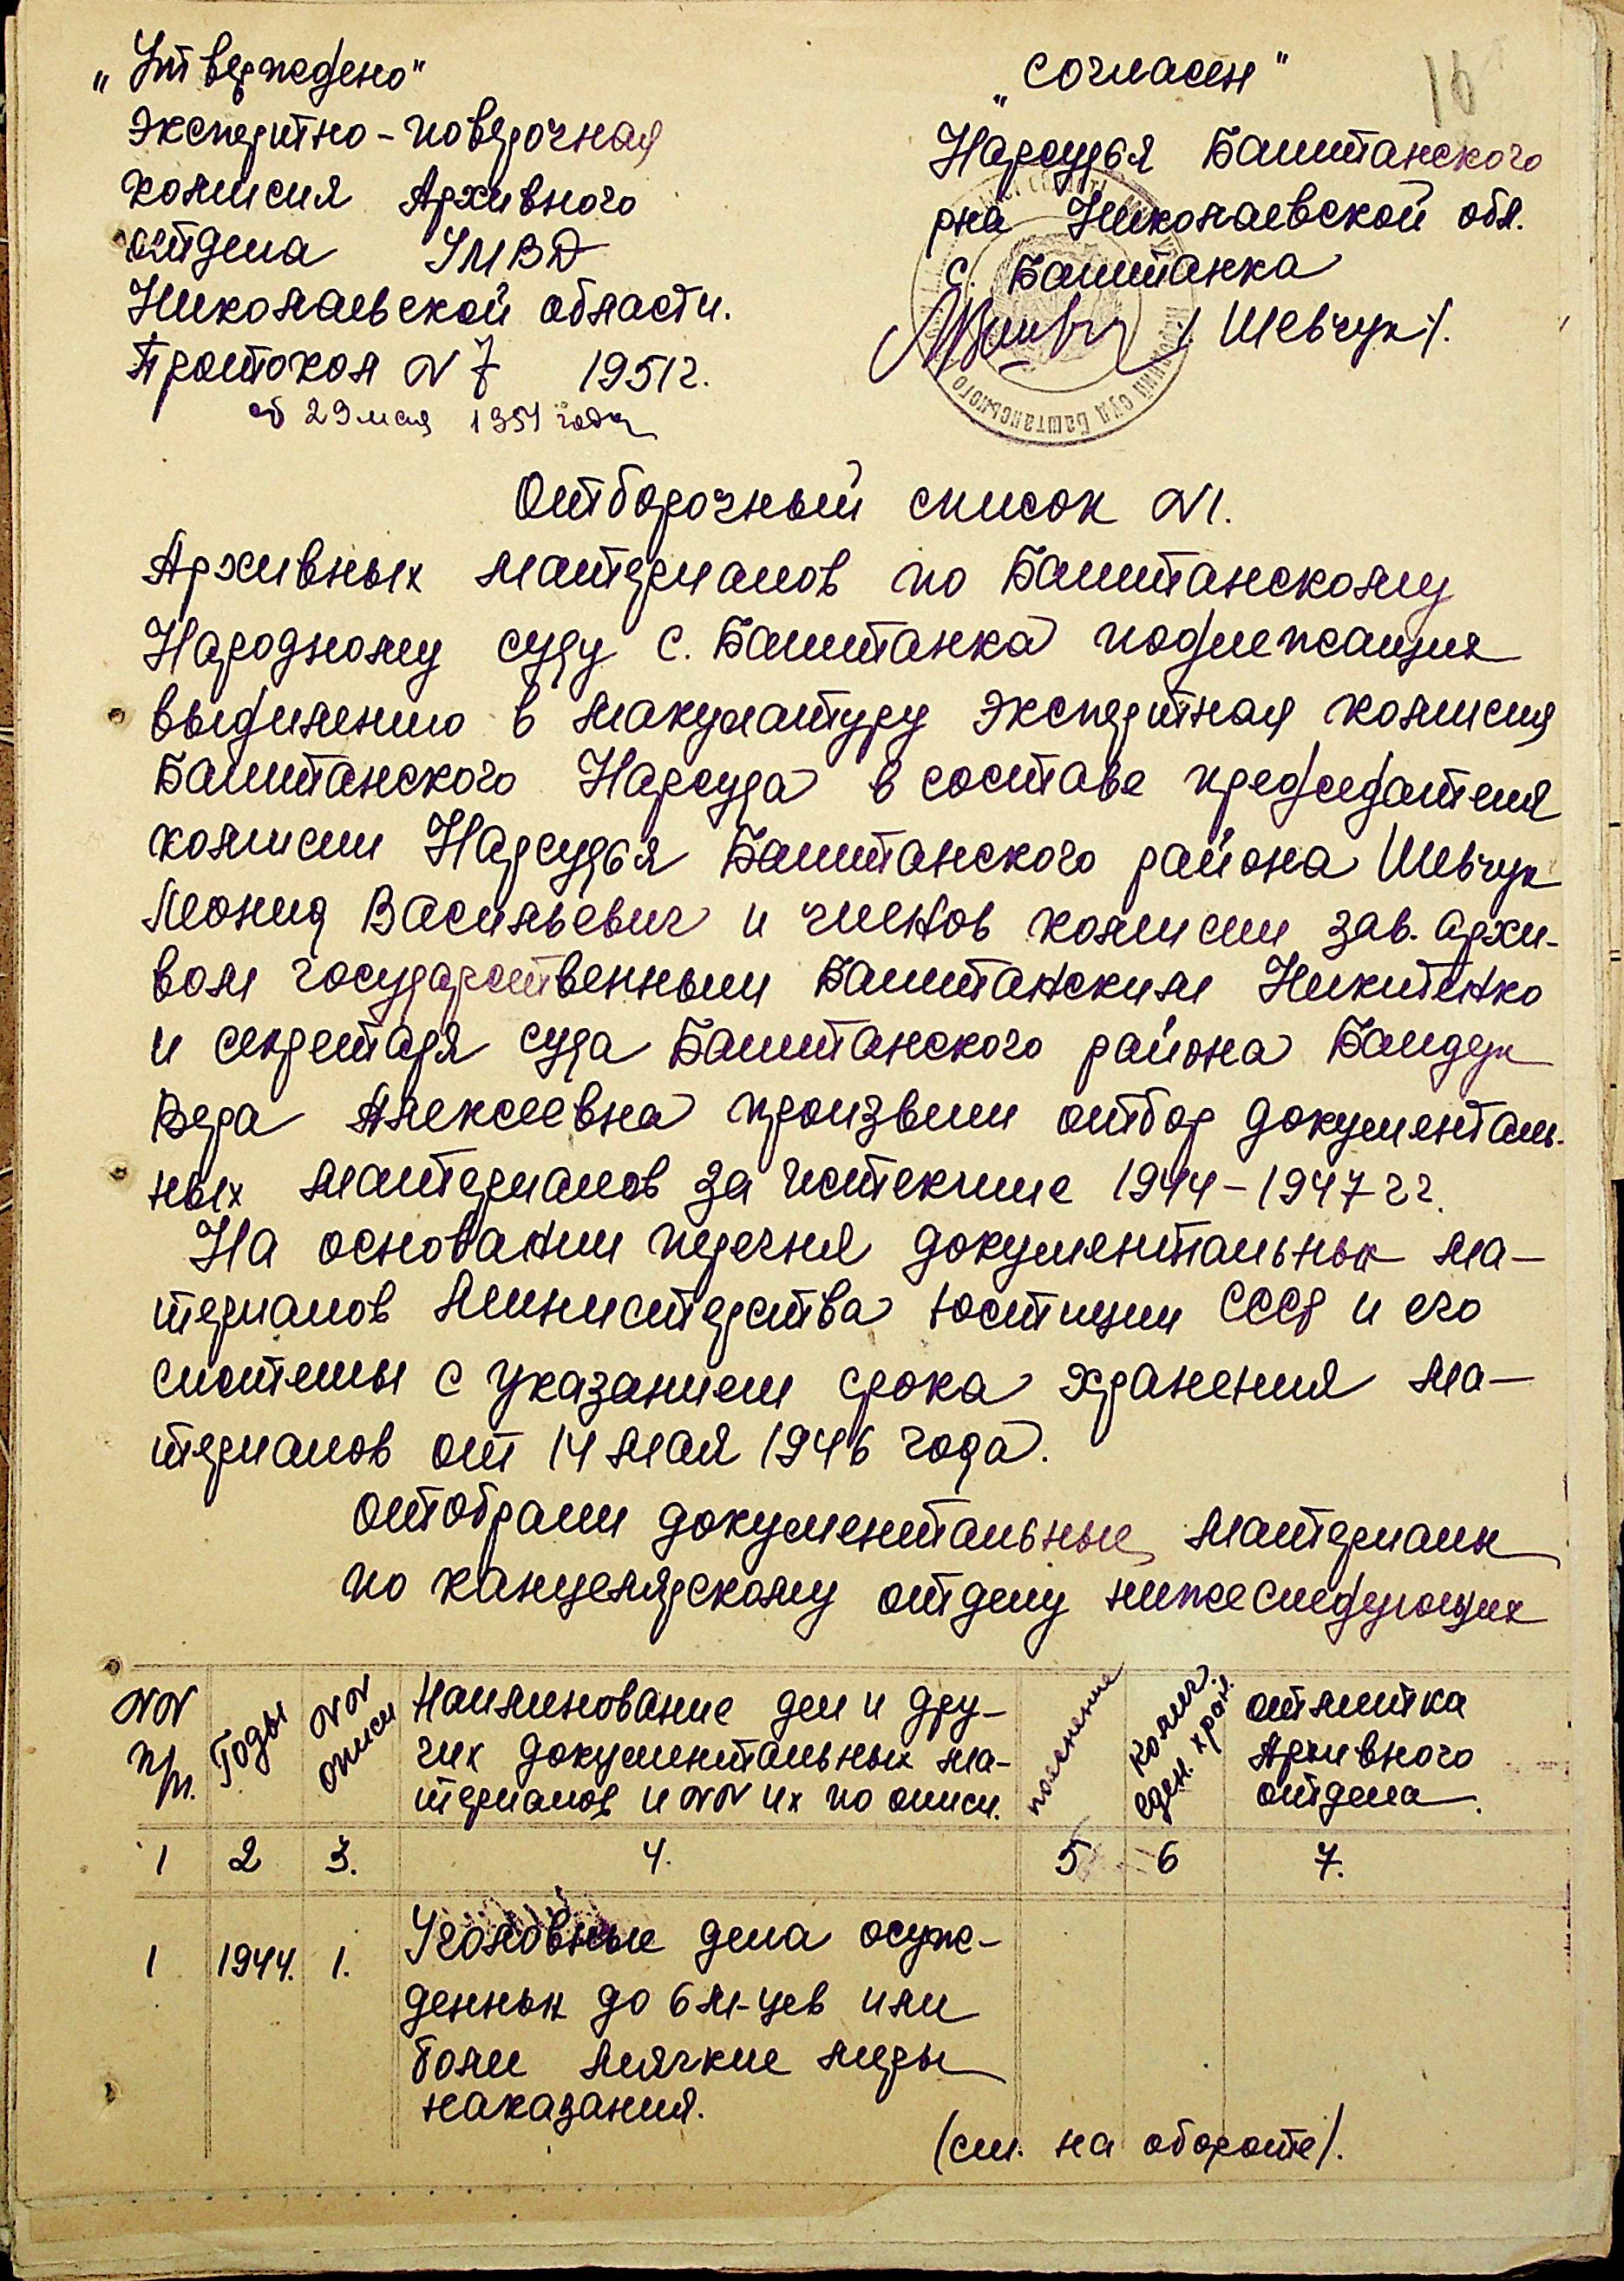 „Утверждено"
Экспертно-поверочная
комисия Архивного
отдела УМВД
Николаевской области.
Протокол N 7 1951г.
от 29 мая 1951 года
„согласен"
16
Нарсудья Баштанского
рна Николаевской обл.
с. Баштанка
/Шевчук/.
Отборочный список N1.
Архивных материалов по Баштанскому
Народному суду с. Баштанка подлежащия
выдилению в макулатуру экспертная комисия
Баштанского Нарсуда в составе председателя
комисии Нарсудья Баштанского района Шевчук
Леонид Васильевич и членов комисии зав. архи-
вом государственным Баштанским Никитенко
и секретаря суда Баштанского района Байдук
Вера Алексеевна произвели отбор документаль-
ных материалов за истекшие 1944-1947 гг.
На основании перечня документальных ма-
териалов Министерства Юстиции СССР и его
системы с указанием срока хранения ма-
териалов от 14 мая 1946 года.
Отобрали документальные материалы
по канцелярскому отделу нижеследующих
NN п/п. Годы NN описи Наиминование дел и дру-
гих документальных ма-
териалов и NN их по описи.
пояснение Колич. еден. хран. отмитка
Архивного
отдела.
1 2 3. 4. 5 6 7.
1 1944. 1. Уголовные дела осуж-
денных до 6 м-цев или
боли мягкие меры
наказания.
(см. на обороте).